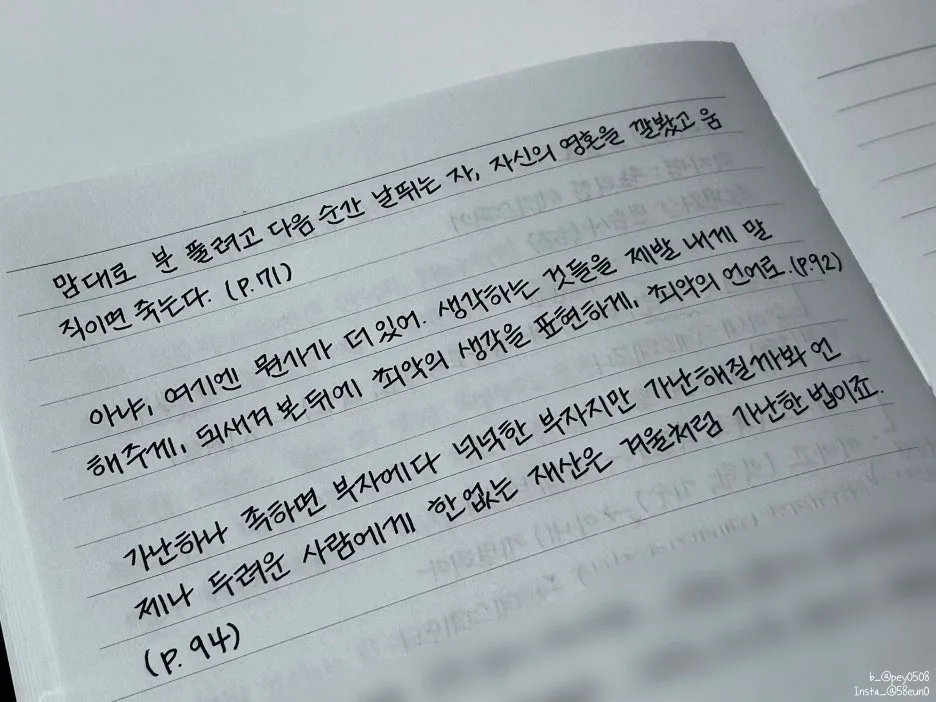 맘대로 분 풀려고 다음 순간 날뛰는 자, 자신의 영혼을 깔봤고 움
직이면 죽는다. (p.71)
아냐, 여기엔 뭔가가 더 있어. 생각하는 것들을 제발 내게 말
해주게, 되새겨 본 뒤에 최악의 생각을 표현하게, 최악의 언어로.(p.92)
가난하나 족하면 부자에다 넉넉한 부자지만 가난해질까봐 언
제나 두려운 사람에게 한없는 재산은 겨울처럼 가난한 법이죠.
(p.94)
b_@pey0508
Insta_@58eun0